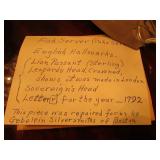 Fish Server
English Hallmarks.
(Lion Passant (Sterling)
Leopards Head, Crowned,
shows it was made in London
Sovereign's Head
(Letter for the year 1792
This piece was repaired for us by
Gebelein Silversmiths of Boston